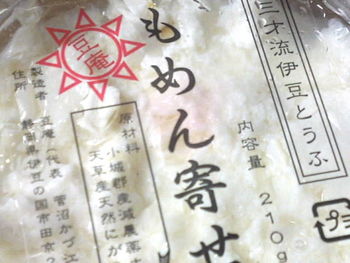 三才流伊豆とうふ
内容量 210g
もめん寄せ
豆庵
原材料 小城郡産減農薬
天草産天然にが
製造者 豆庵(代表 菅沼かづ江
住所 静岡県伊豆の国市田京2
プ